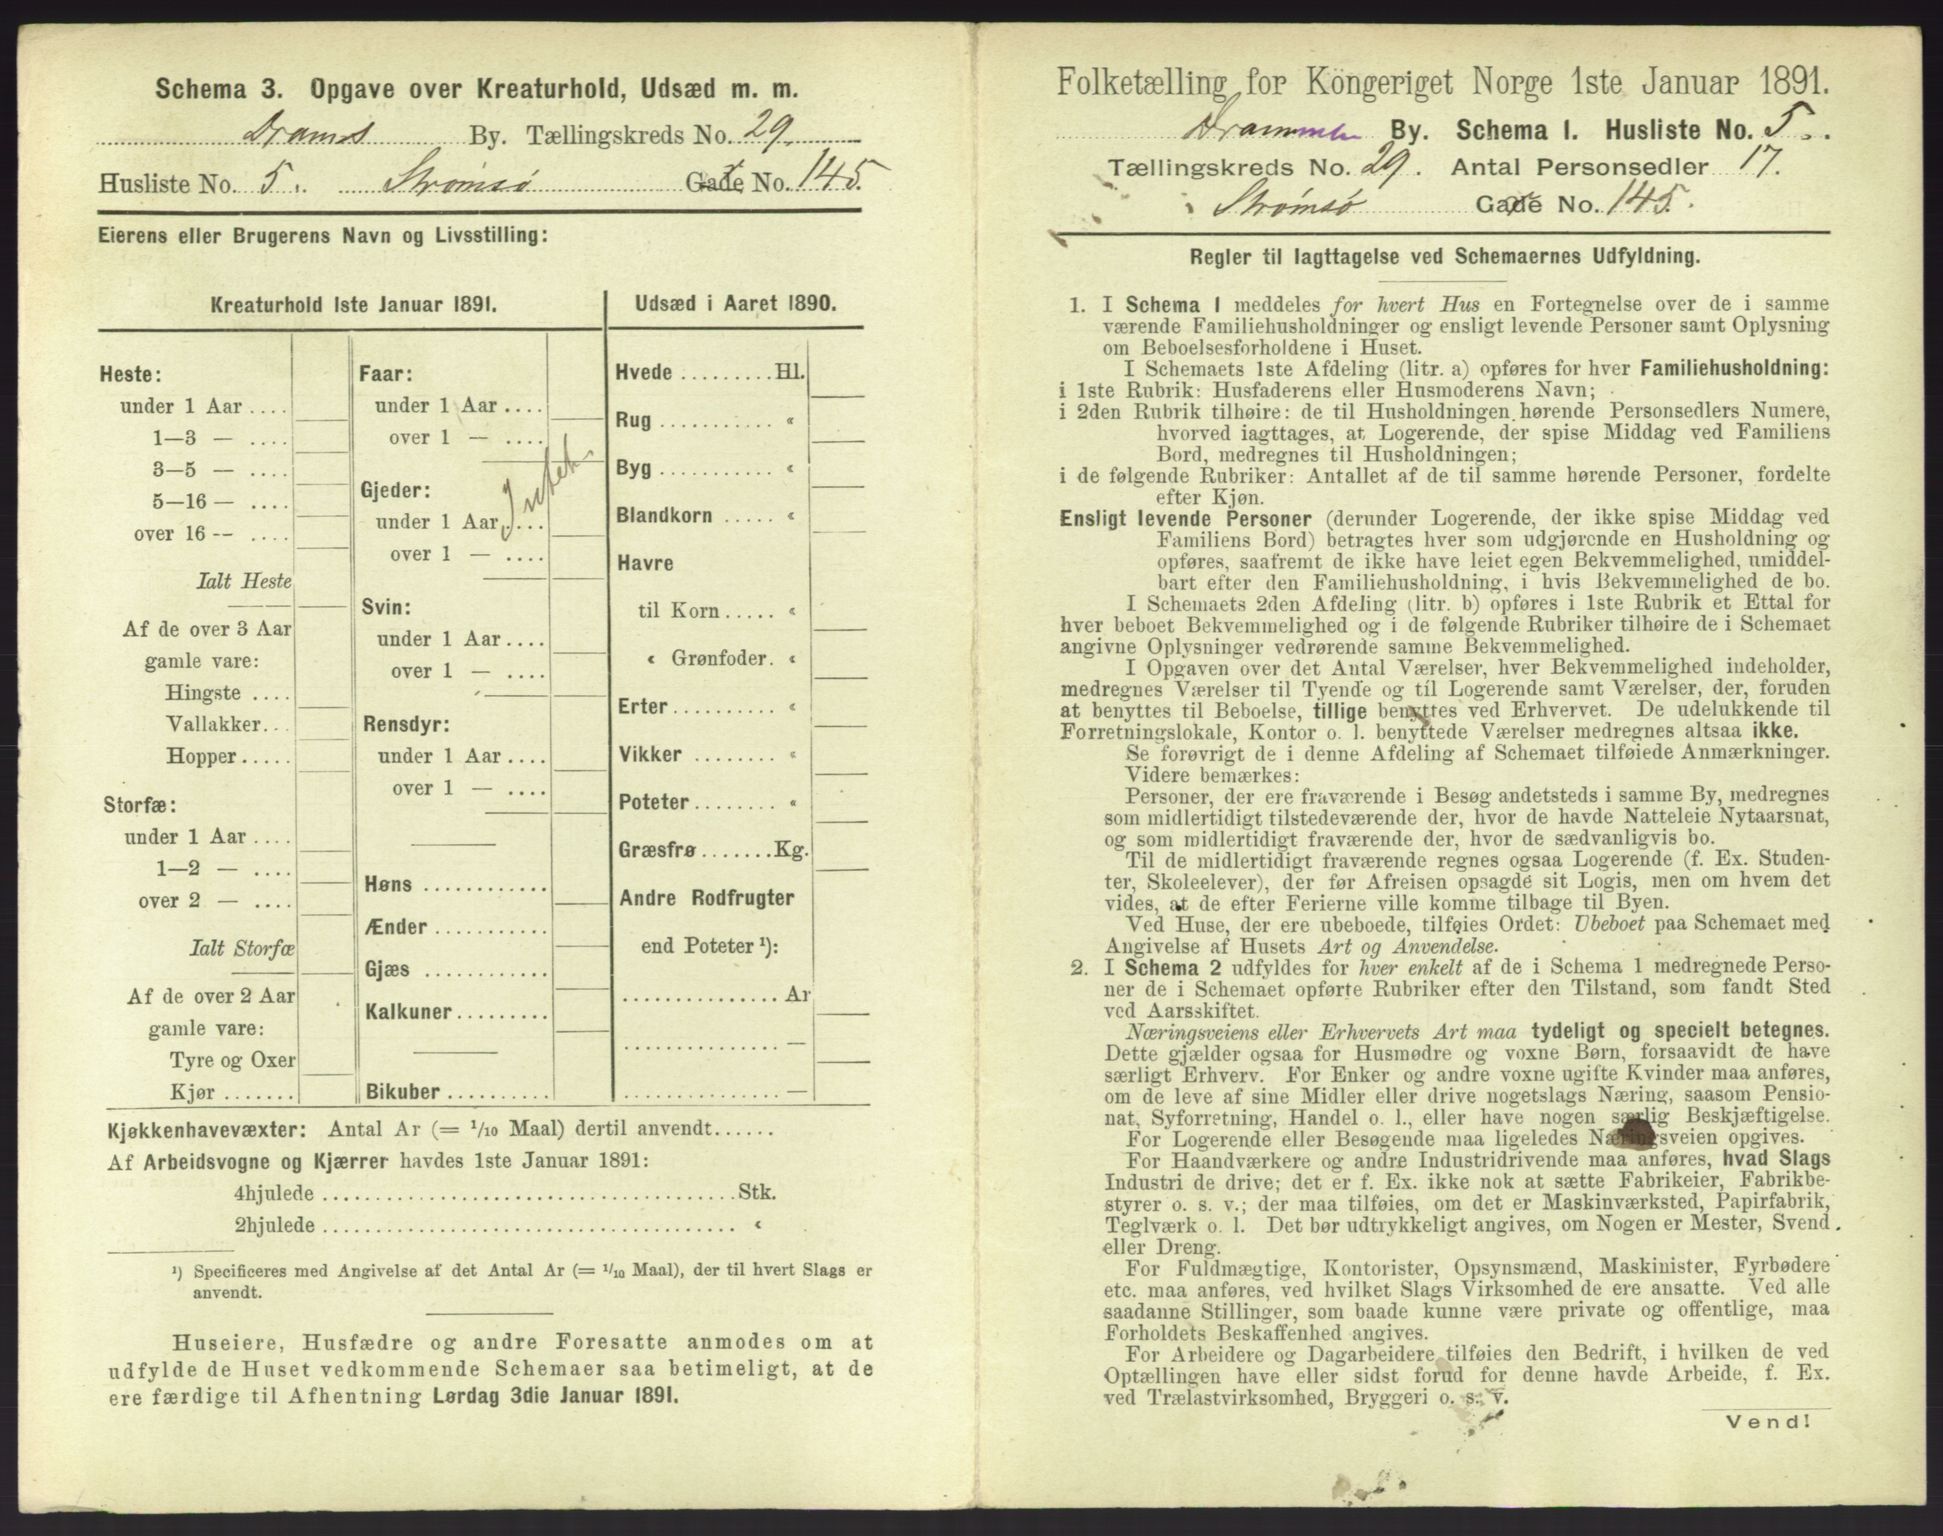 Schema 3. Opgave over Kreaturhold, Udsæd m. m.
Dramms By. Tællingskreds No. 29.
Husliste No. 5. Strømsø Gade No. 145.
Eierens eller Brugerens Navn og Livsstilling:
Kreaturhold 1ste Januar 1891.
Heste:
under 1 Aar ....
1—3 — ....
3—5 — ....
5—16 — ....
over 16 -- ....
Ialt Heste
Af de over 3 Aar
gamle vare:
Hingste ....
Vallakker...
Hopper.....
Storfæ:
under 1 Aar ....
1—2 — ....
over 2 — ....
Ialt Storfæ
Af de over 2 Aar
gamle vare:
Tyre og Oxer
Kjør .......
Faar:
under 1 Aar ....
over 1 — ....
Gjeder:
under 1 Aar ....
over 1 — ....
Intet.
Svin:
under 1 Aar ....
over 1 — ....
Rensdyr:
under 1 Aar ....
over 1 — ....
Høns ............
Ænder ...........
Gjæs ............
Kalkuner.........
Bikuber ..........
Udsæd i Aaret 1890.
Hvede .........Hl.
Rug ........... «
Byg ........... «
Blandkorn ..... «
Havre
til Korn..... «
« Grønfoder. «
Erter.......... «
Vikker ........ «
Poteter........ «
Græsfrø.......Kg.
Andre Rodfrugter
end Poteter ¹):
............... Ar
............... —
............... —
Kjøkkenhavevæxter: Antal Ar (= 1/10 Maal) dertil anvendt......
Af Arbeidsvogne og Kjærrer havdes 1ste Januar 1891:
4hjulede ......................................Stk.
2hjulede ...................................... «
¹) Specificeres med Angivelse af det Antal Ar (= 1/10 Maal), der til hvert Slags er
anvendt.
Huseiere, Husfædre og andre Foresatte anmodes om at
udfylde de Huset vedkommende Schemaer saa betimeligt, at de
ere færdige til Afhentning Lørdag 3die Januar 1891.
Folketælling for Kongeriget Norge 1ste Januar 1891.
Drammen By. Schema 1. Husliste No. 5.
Tællingskreds No. 29. Antal Personsedler 17.
Strømsø Gade No. 145.
Regler til Iagttagelse ved Schemaernes Udfyldning.
1. I Schema 1 meddeles for hvert Hus en Fortegnelse over de i samme
værende Familiehusholdninger og ensligt levende Personer samt Oplysning
om Beboelsesforholdene i Huset.
I Schemaets 1ste Afdeling (litr. a) opføres for hver Familiehusholdning:
i 1ste Rubrik: Husfaderens eller Husmoderens Navn;
i 2den Rubrik tilhøire: de til Husholdningen hørende Personsedlers Numere,
hvorved iagttages, at Logerende, der spise Middag ved Familiens
Bord, medregnes til Husholdningen;
i de følgende Rubriker: Antallet af de til samme hørende Personer, fordelte
efter Kjøn.
Ensligt levende Personer (derunder Logerende, der ikke spise Middag ved
Familiens Bord) betragtes hver som udgjørende en Husholdning og
opføres, saafremt de ikke have leiet egen Bekvemmelighed, umiddel-
bart efter den Familiehusholdning, i hvis Bekvemmelighed de bo.
I Schemaets 2den Afdeling (litr. b) opføres i 1ste Rubrik et Ettal for
hver beboet Bekvemmelighed og i de følgende Rubriker tilhøire de i Schemaet
angivne Oplysninger vedrørende samme Bekvemmelighed.
I Opgaven over det Antal Værelser, hver Bekvemmelighed indeholder,
medregnes Værelser til Tyende og til Logerende samt Værelser, der, foruden
at benyttes til Beboelse, tillige benyttes ved Erhvervet. De udelukkende til
Forretningslokale, Kontor o. l. benyttede Værelser medregnes altsaa ikke.
Se forøvrigt de i denne Afdeling af Schemaet tilføiede Anmærkninger.
Videre bemærkes:
Personer, der ere fraværende i Besøg andetsteds i samme By, medregnes
som midlertidigt tilstedeværende der, hvor de havde Natteleie Nytaarsnat,
og som midlertidigt fraværende der, hvor de sædvanligvis bo.
Til de midlertidigt fraværende regnes ogsaa Logerende (f. Ex. Studen-
ter, Skoleelever), der før Afreisen opsagde sit Logis, men om hvem det
vides, at de efter Ferierne ville komme tilbage til Byen.
Ved Huse, der ere ubeboede, tilføies Ordet: Ubeboet paa Schemaet med
Angivelse af Husets Art og Anvendelse.
2. I Schema 2 udfyldes for hver enkelt af de i Schema 1 medregnede Perso-
ner de i Schemaet opførte Rubriker efter den Tilstand, som fandt Sted
ved Aarsskiftet.
Næringsveiens eller Erhvervets Art maa tydeligt og specielt betegnes.
Dette gjælder ogsaa for Husmødre og voxne Børn, forsaavidt de have
særligt Erhverv. For Enker og andre voxne ugifte Kvinder maa anføres,
om de leve af sine Midler eller drive nogetslags Næring, saasom Pensio-
nat, Syforretning, Handel o. l., eller have nogen særlig Beskjæftigelse.
For Logerende eller Besøgende maa ligeledes Næringsveien opgives.
For Haandværkere og andre Industridrivende maa anføres, hvad Slags
Industri de drive; det er f. Ex. ikke nok at sætte Fabrikeier, Fabrikbe-
styrer o. s. v.; der maa tilføies, om det er Maskinværksted, Papirfabrik,
Teglværk o. l. Det bør udtrykkeligt angives, om Nogen er Mester, Svend
eller Dreng.
For Fuldmægtige, Kontorister, Opsynsmænd, Maskinister, Fyrbødere
etc. maa anføres, ved hvilket Slags Virksomhed de ere ansatte. Ved alle
saadanne Stillinger, som baade kunne være private og offentlige, maa
Forholdets Beskaffenhed angives.
For Arbeidere og Dagarbeidere tilføies den Bedrift, i hvilken de ved
Optællingen have eller sidst forud for denne havde Arbeide, f. Ex.
ved Trælastvirksomhed, Bryggeri o. s. v.
Vend!